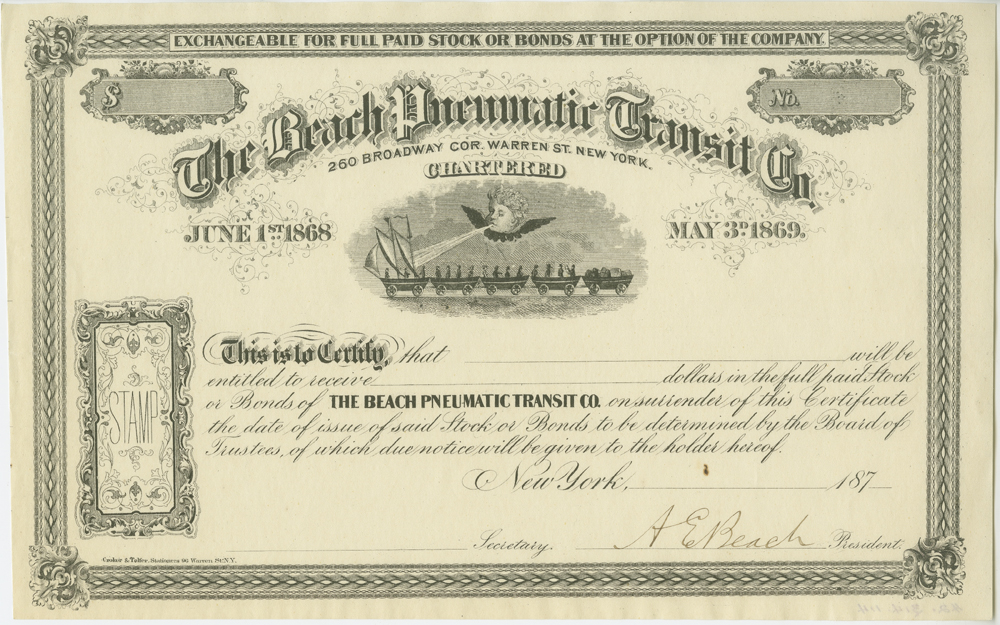 EXCHANGEABLE FOR FULL PAID STOCK OR BONDS AT THE OPTION OF THE COMPANY.
$
No.
The Beach Pneumatic Transit Co.
260 BROADWAY COR. WARREN ST. NEW YORK.
CHARTERED
JUNE 1ST 1868
MAY 3D 1869.
This is to Certify, that will be
entitled to receive dollars in the full paid Stock
or Bonds of THE BEACH PNEUMATIC TRANSIT CO. on surrender of this Certificate
the date of issue of said Stock or Bonds to be determined by the Board of
Trustees, of which due notice will be given to the holder hereof.
STAMP
New York, 187
Secretary. A E Beach President.
Croker & Telfer, Stationers 90 Warren St. N.Y.